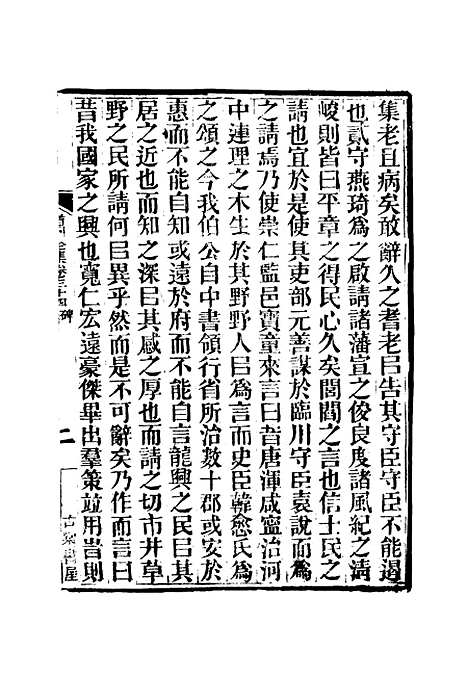 集老且病矣敢辭久之耆老㠯告其守臣守臣不能遏
也貳守燕琦爲之啟請諸藩宣之俊良度諸風紀之淸
峻則皆曰平章之得民心久矣閭閻之言也信士民之
請也宜於是使其吏部元善謀於臨川守臣袁說而爲
之請焉乃使崇仁監邑寶童來言曰昔唐渾咸寧治河
中連理之木生於其野野人㠯爲言而史臣韓愈氏爲
之頌之今我伯公自中書領行省所治數十郡或安於
惠而不能自知或遠於府而不能自言龍興之民㠯其
居之近也而知之深㠯其感之厚也而請之切市井草
野之民所請何㠯異乎然而是不可辭矣乃作而言曰
昔我國家之興也寬仁宏遠豪傑畢出羣策竝用旹則
卷三十四 碑
二
古棠書屋